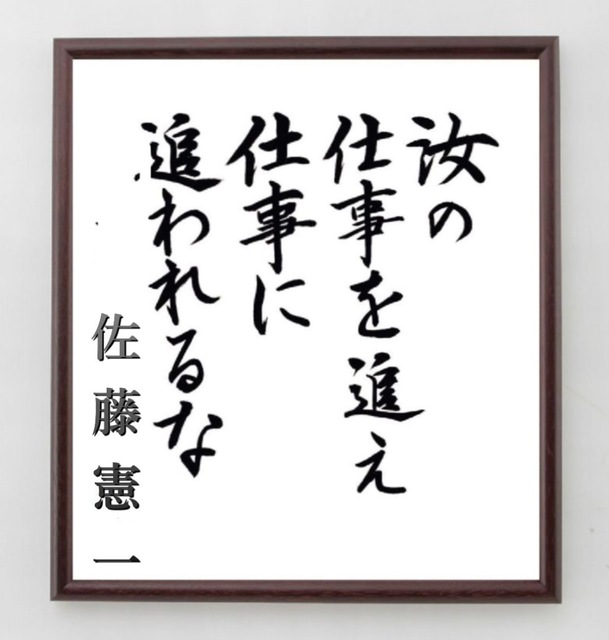 汝の
仕事を追え
仕事に
追われるな
佐藤憲一